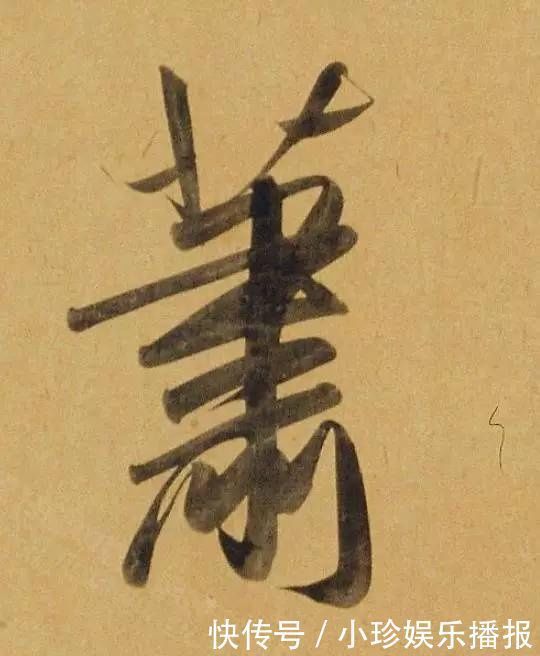 蕭
快传号/小珍娱乐播报